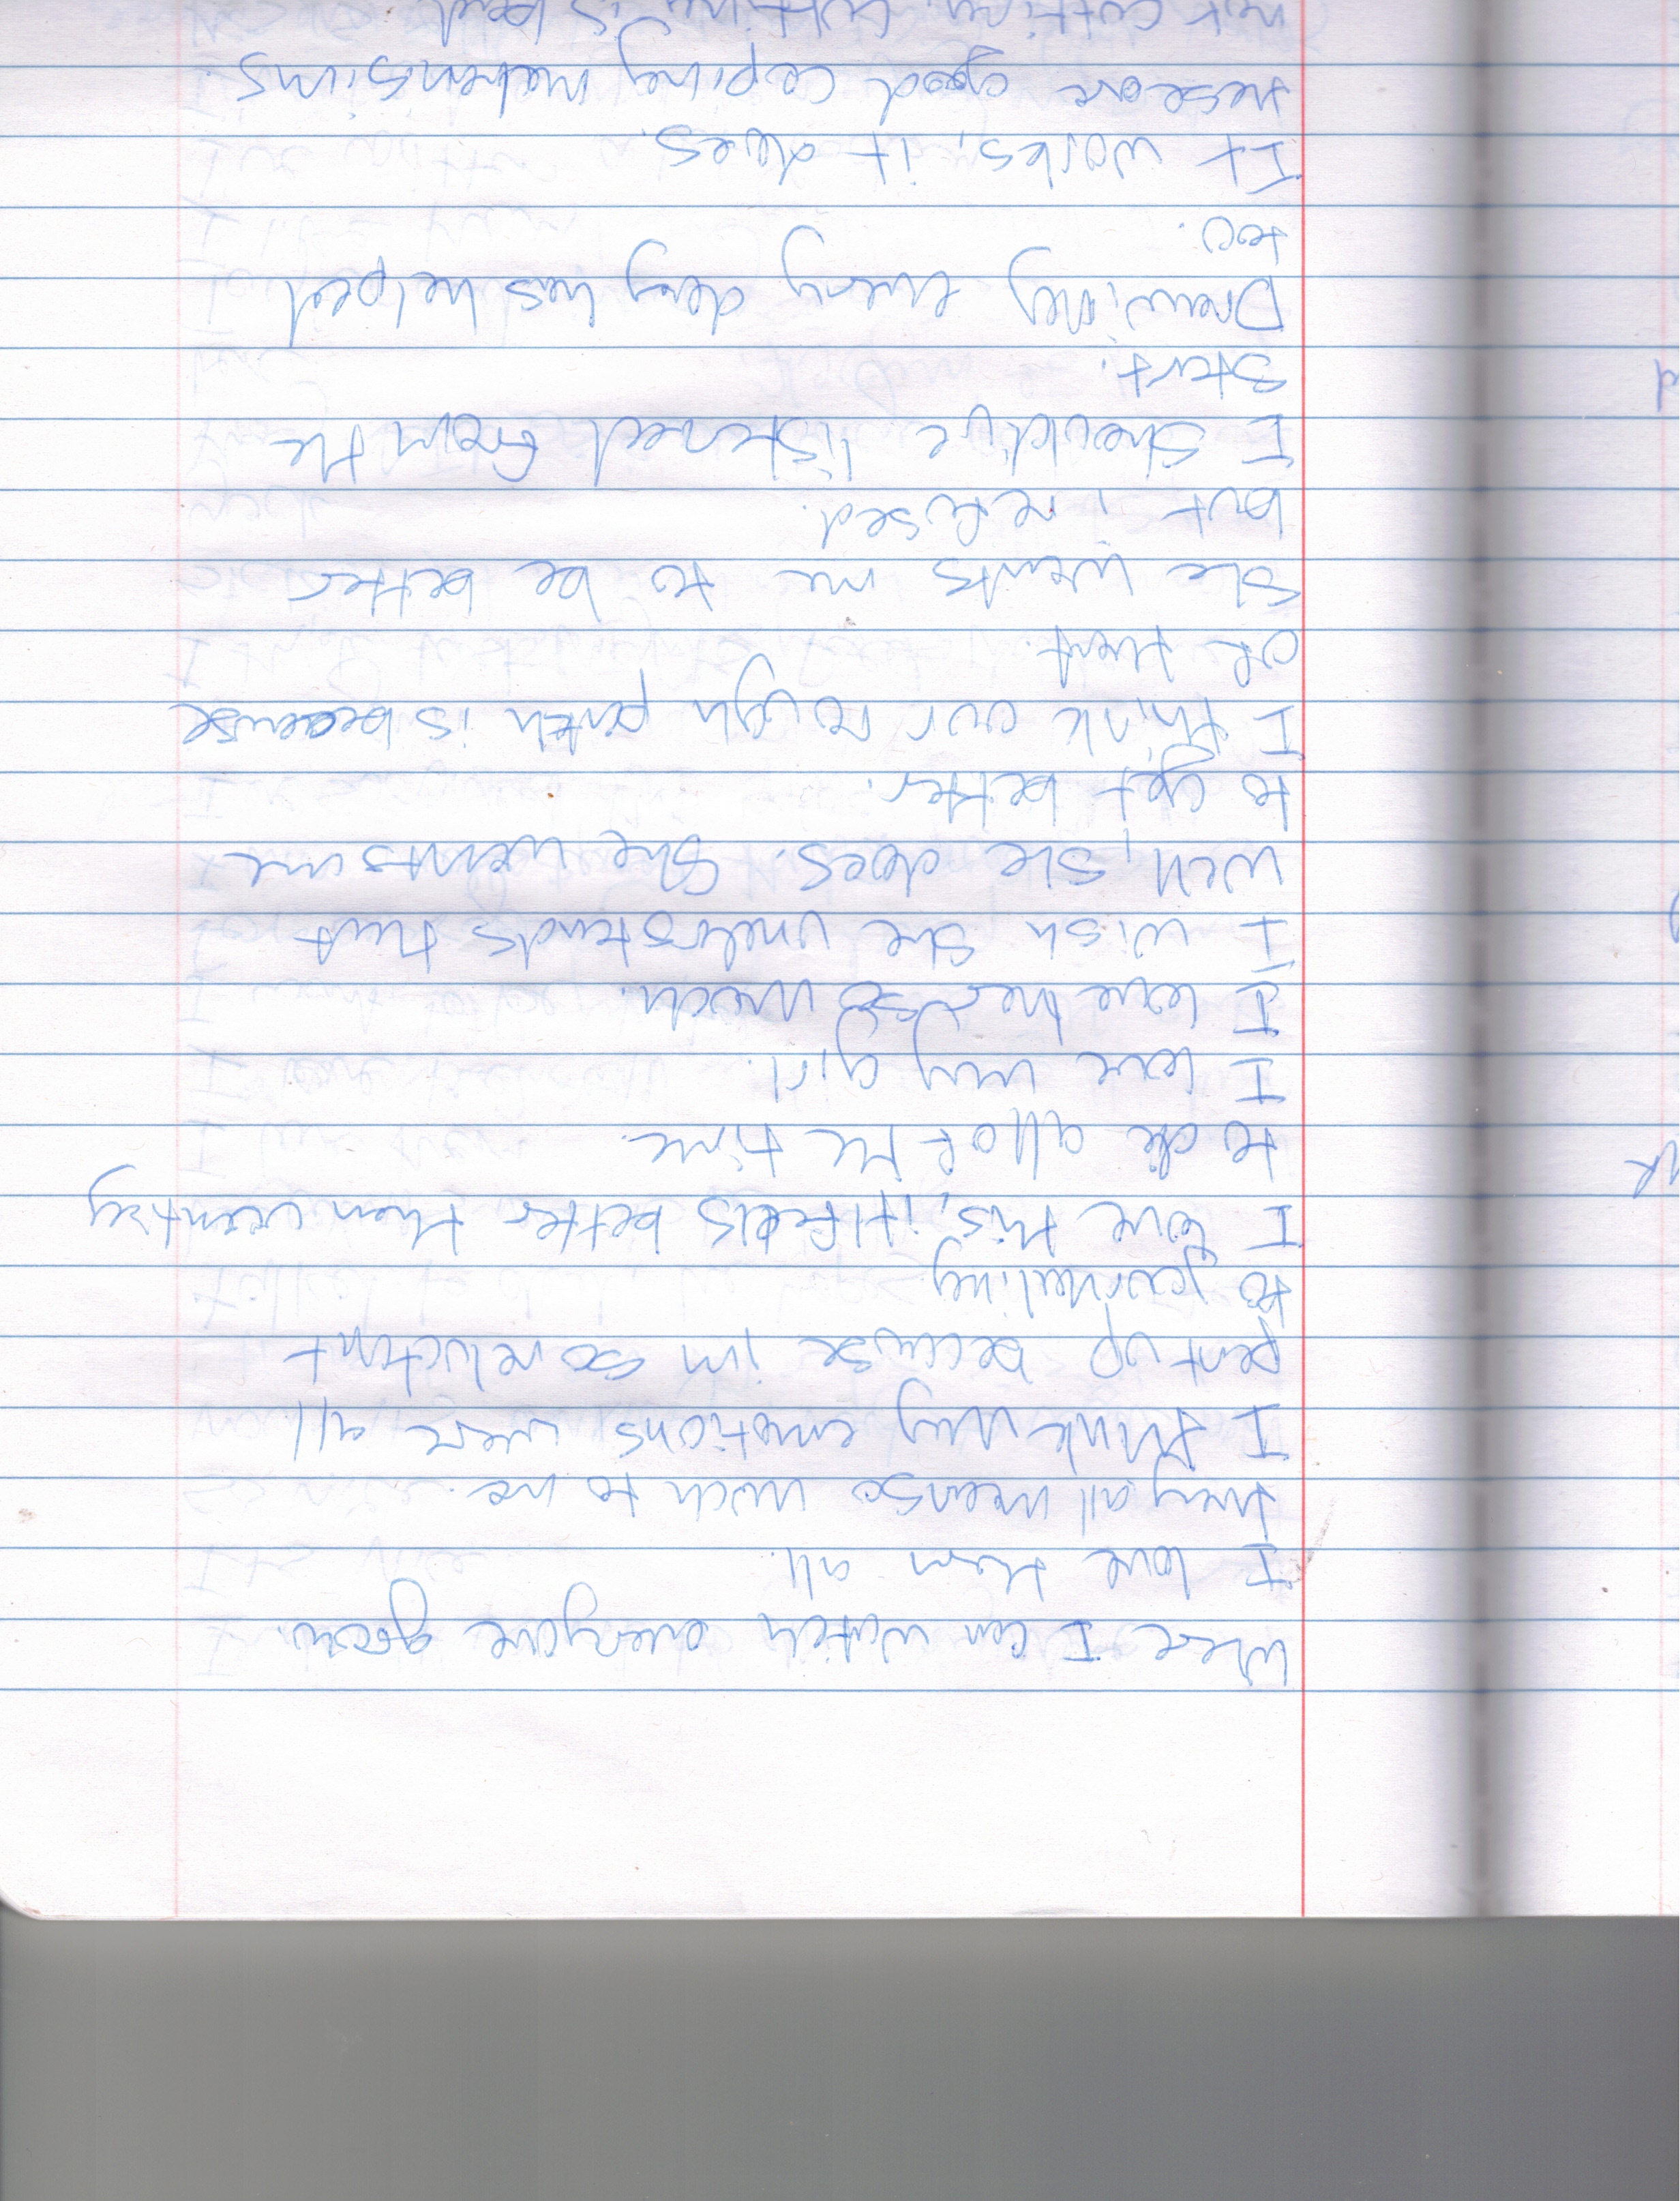 where I can watch everyone grow.
I love them all.
they all mean so much to me.
I think my emotions were all
pent up because im so reluctant
to journaling
I love this, it feels better than wanting
to die all of the time.
I love my girl.
I love her so much.
I wish she understands that
well, she does. She wants me
to get better.
I think our rough patch is because
of that.
She wants me to be better
but i refused.
I should've listened from the
start.
Drawing every day has helped
too.
It works, it does.
these are good coping mechanisims
not cutting. cutting is bad.